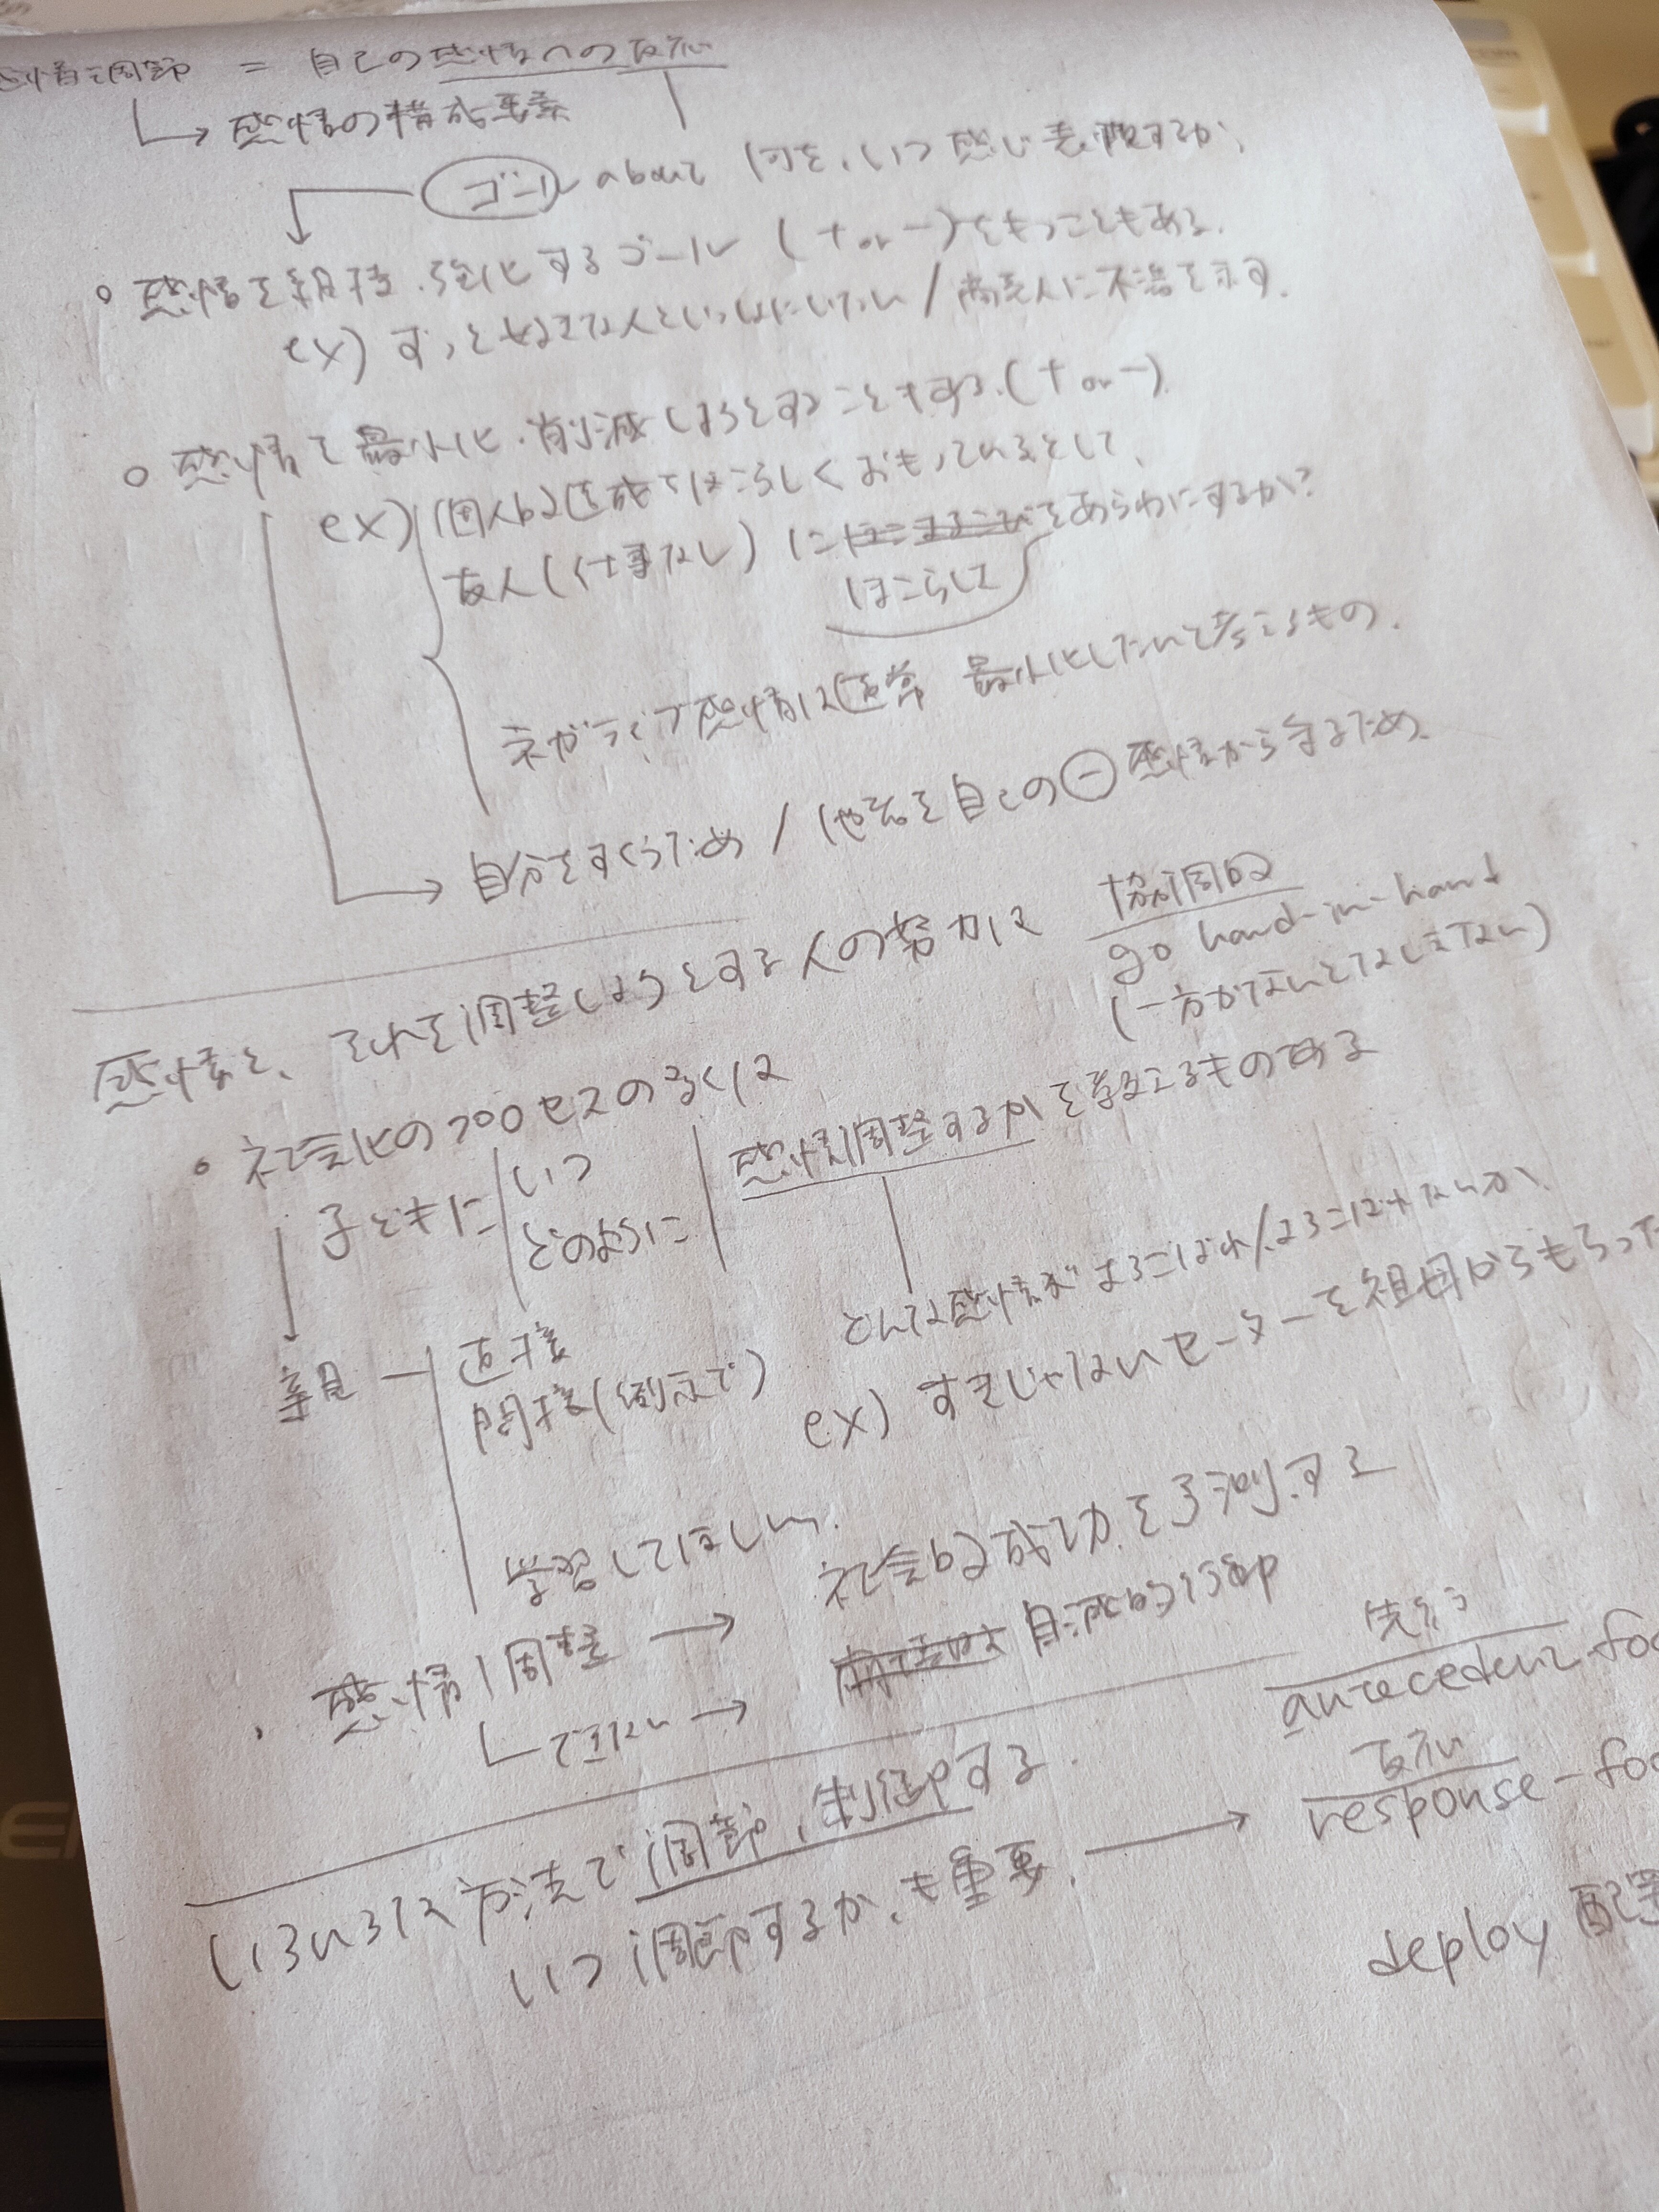 感情調節 = 自己の感情への反応
感情の構成要素
ゴール about 何を、いつ感じ表出するか、
感情を維持、強化するゴール (+ or -) をもつこともある.
ex) ずっと好きな人といっしょにいたい / 商売人に不満を示す.
感情を最小化・削減しようとすることもある. (+ or -)
ex) 個人的達成でほこらしくおもっているとして、
友人 (仕事なし) に をあらわにするか?
ほこらしさ
ネガティブ感情は通常 最小化したいと考えるもの.
自分をすくうため / 他者を自己の⊖感情から守るため.
感情と、それを調整しようとする人の努力は 協調的
go hand-in-hand
(一方がないとなしえない)
社会化のプロセスの多くは
子どもに いつ どのように 感情調整するかを教えるものである
どんな感情がよろこばれ/よろこばれないか、
ex) すきじゃないセーターを祖母からもらった
親 直接
間接 (例示で)
学習してほしい.
感情調整 → 社会的成功を予測する
できない → 自滅的行動
いろいろな方法で調節、制御する.
いつ調節するか、も重要. →
先行
antecedent-foc
反応
response-foc
deploy 配置